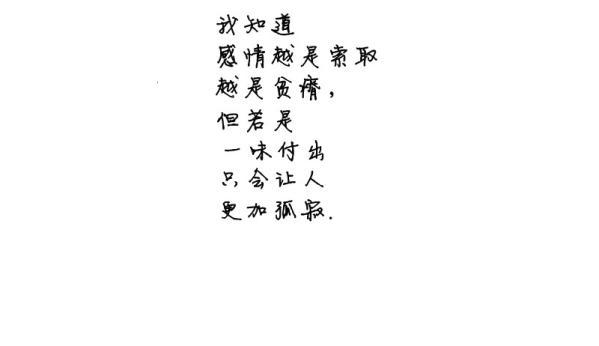 我知道
感情越是索取
越是贫瘠,
但若是
一味付出
只会让人
更加孤寂.